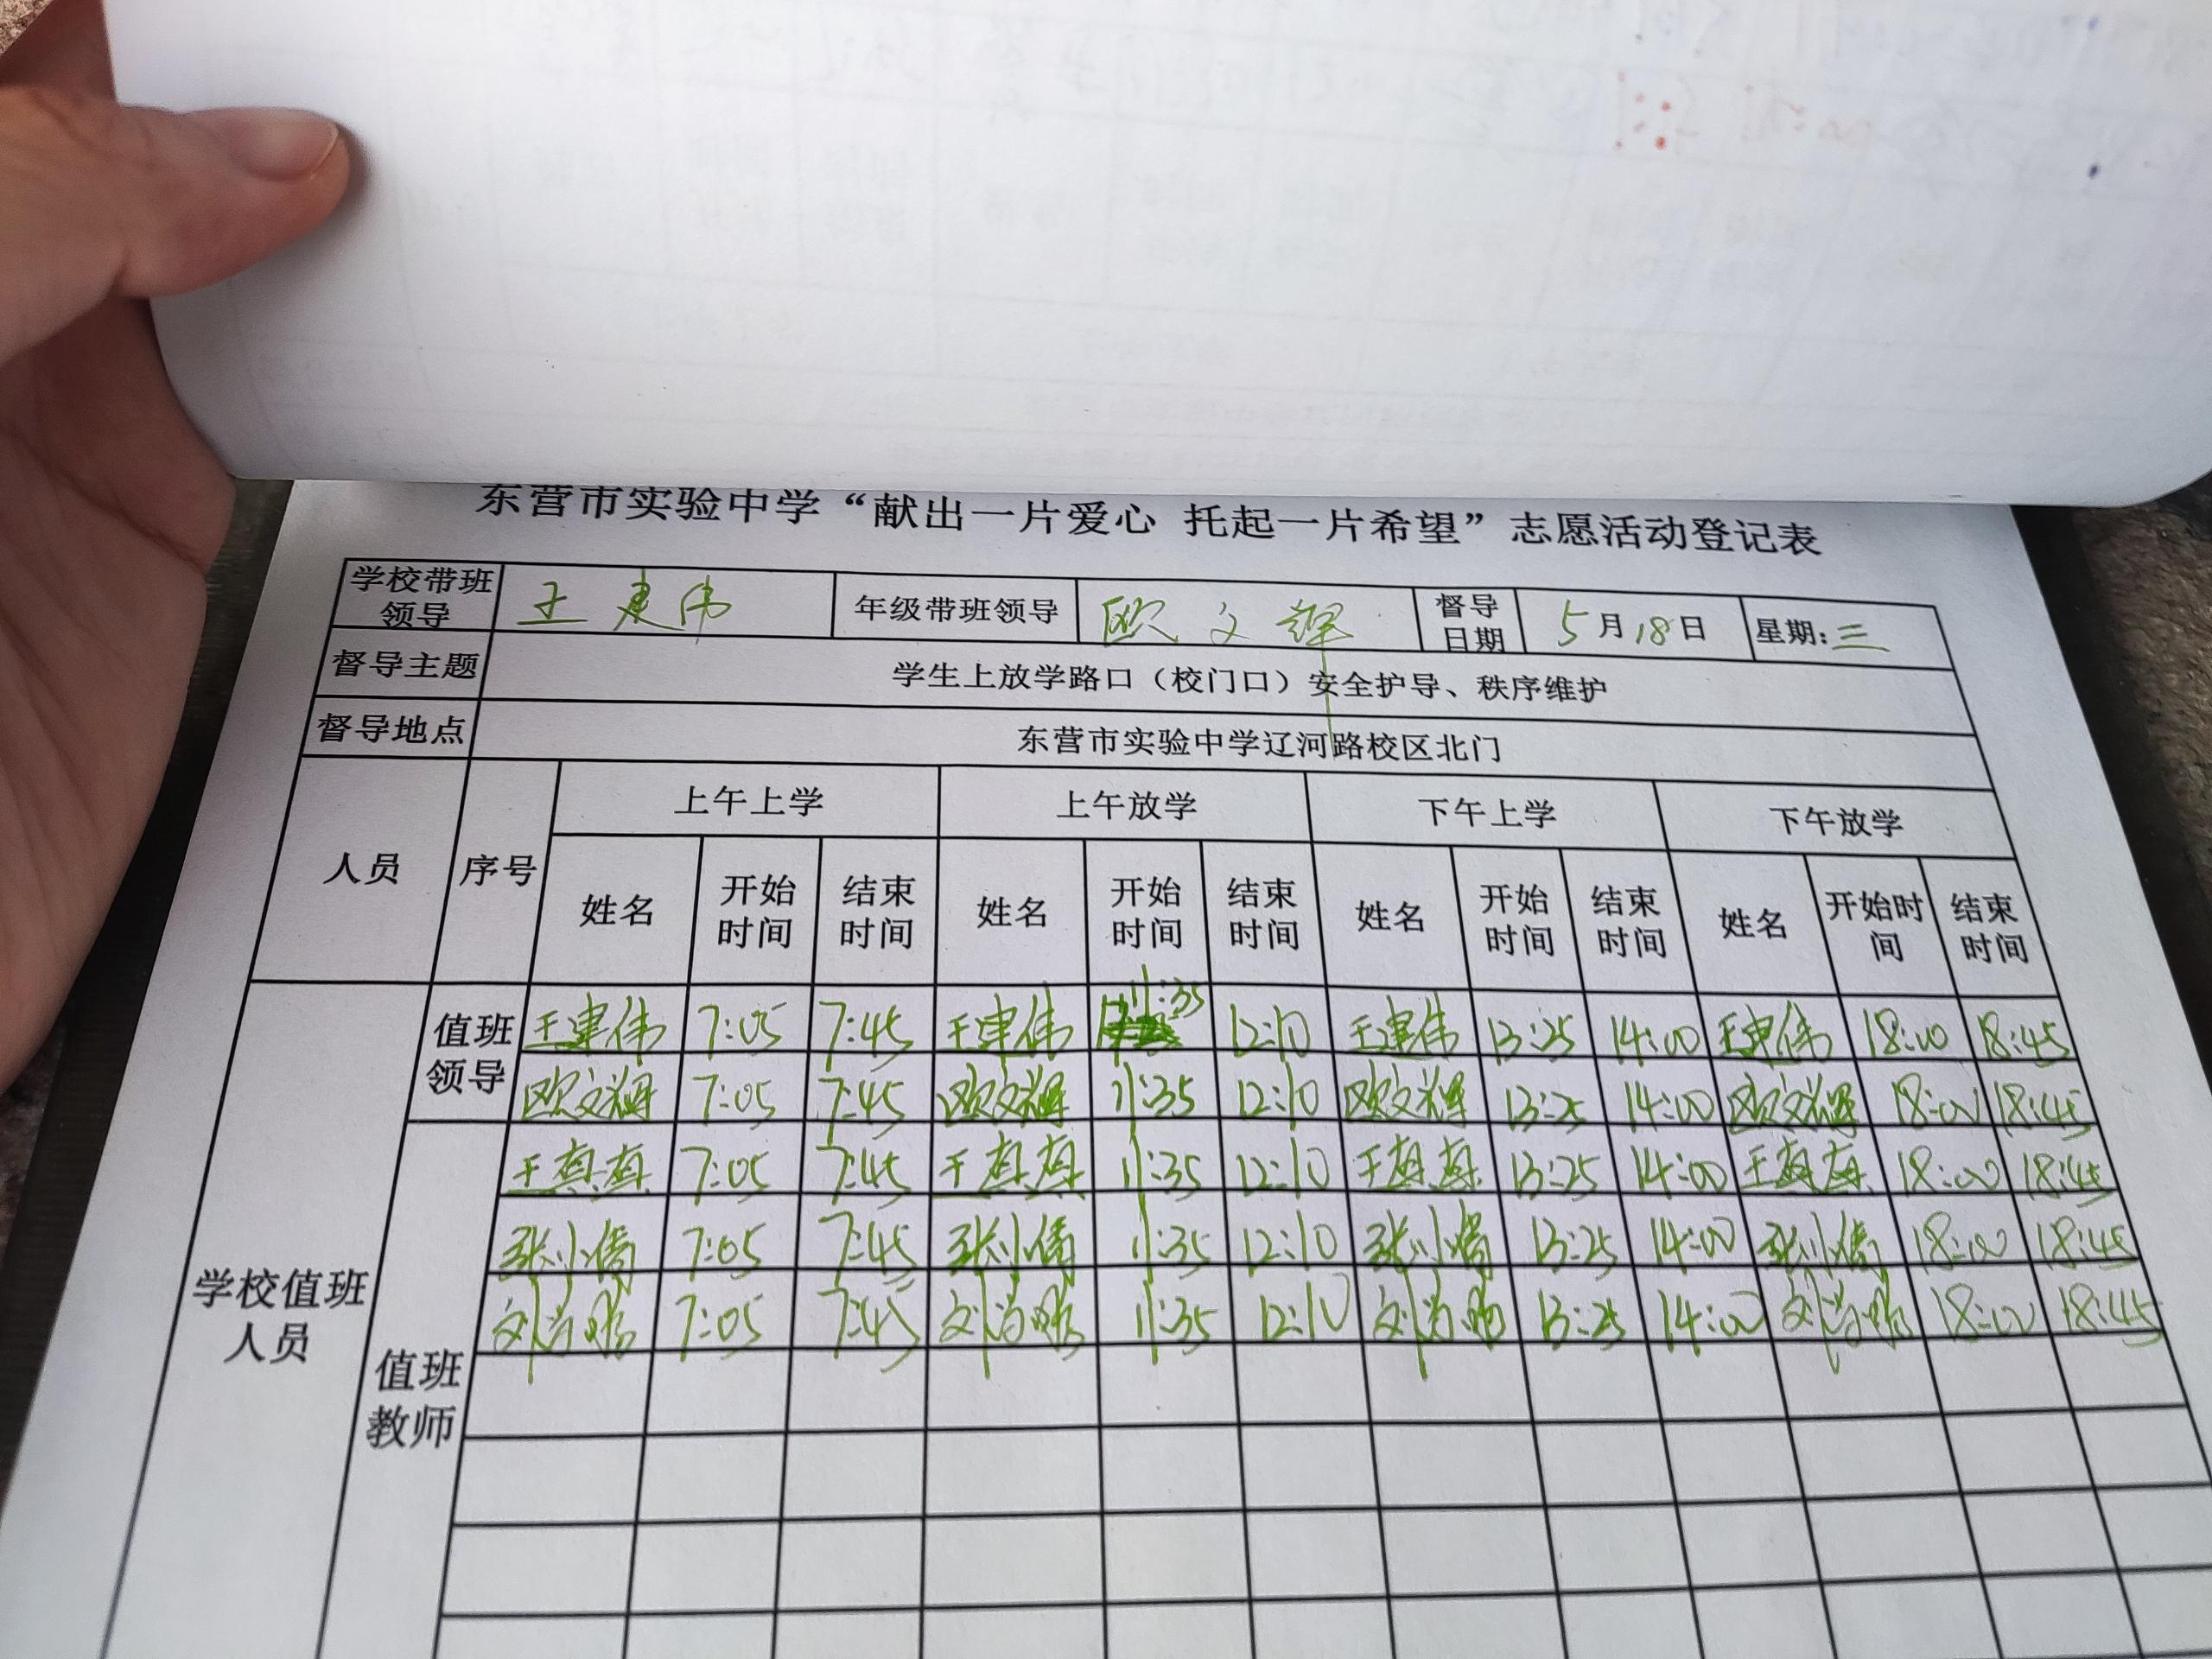 东营市实验中学“献出一片爱心 托起一片希望”志愿活动登记表
学校带班领导 王建伟 年级带班领导 欧文辉 督导日期 5月18日 星期:三
督导主题 学生上放学路口（校门口）安全护导、秩序维护
督导地点 东营市实验中学辽河路校区北门
人员 序号 上午上学 上午放学 下午上学 下午放学
姓名 开始时间 结束时间 姓名 开始时间 结束时间 姓名 开始时间 结束时间 姓名 开始时间 结束时间
学校值班人员
值班领导
王建伟 7:05 7:45 王建伟 11:35 12:10 王建伟 13:25 14:00 王建伟 18:00 18:45
欧文辉 7:05 7:45 欧文辉 11:35 12:10 欧文辉 13:25 14:00 欧文辉 18:00 18:45
值班教师
王真真 7:05 7:45 王真真 11:35 12:10 王真真 13:25 14:00 王真真 18:00 18:45
张小倩 7:05 7:45 张小倩 11:35 12:10 张小倩 13:25 14:00 张小倩 18:00 18:45
7:05 7:45 11:35 12:10 13:25 14:00 18:00 18:45